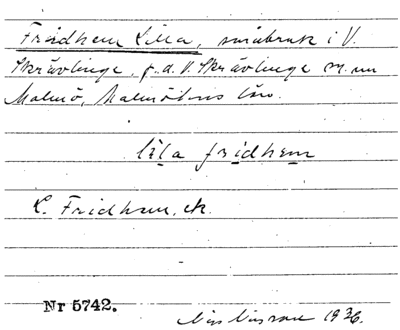 Fridhem Lilla, småbruk i V.
Skrävlinge, f.d. V. Skrävlinge sn. nu
Malmö, Malmöhus län.
lìla frìdhem
L. Fridhem, ek.
Nr 5742.
1936.